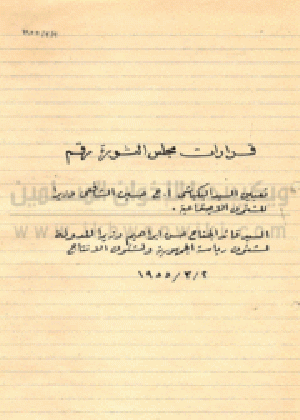 قرارات مجلس الثورة رقم
تعيين السيد البكباشى أ.ح حسين الشافعى وزيرا
للشئون الاجتماعية .
السيد قائد الجناح حسن ابراهيم وزيرا للدولة
لشئون رياسة الجمهورية ولشئون الانتاج
١٩٥٥/٢/٢